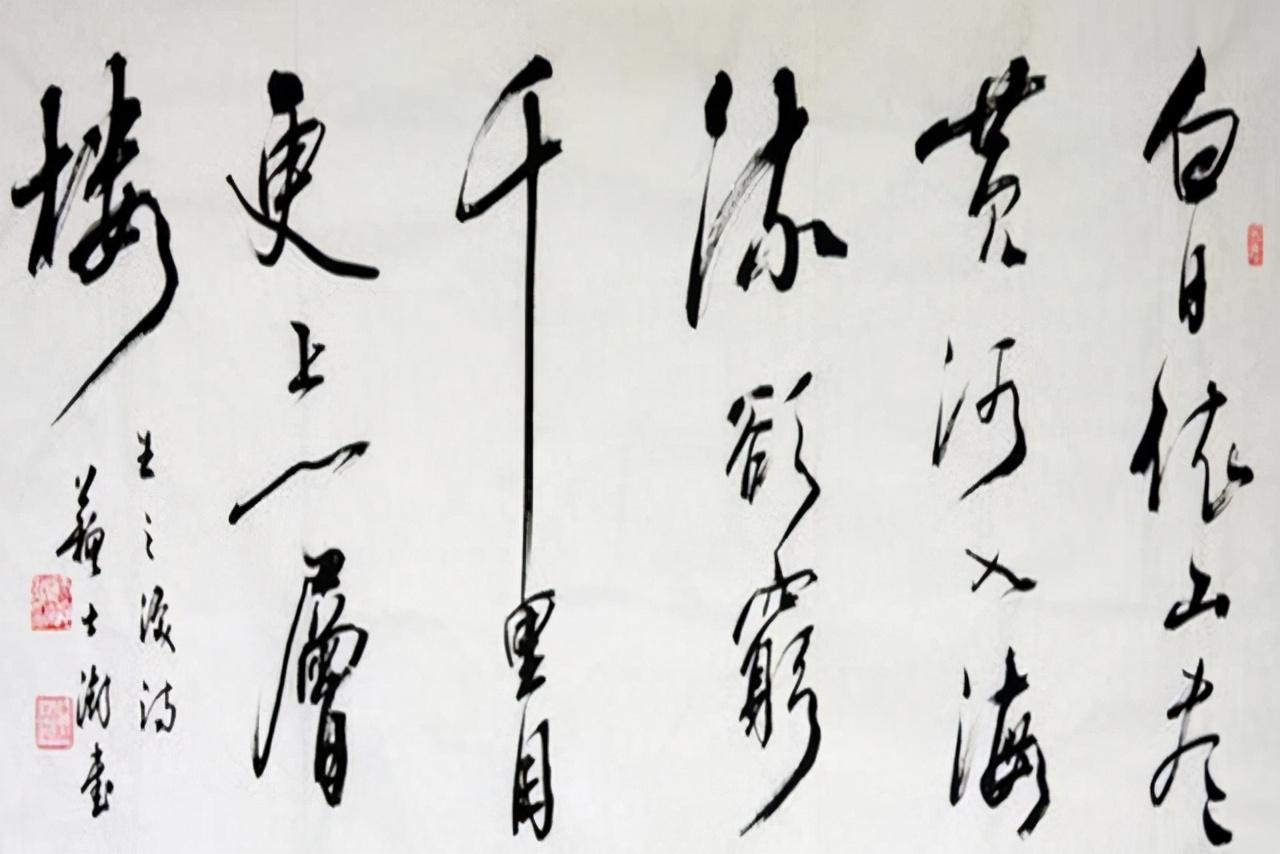 白日依山尽
黄河入海
流欲穷
千里目
更上一层
楼
王之涣诗
苏士澍书